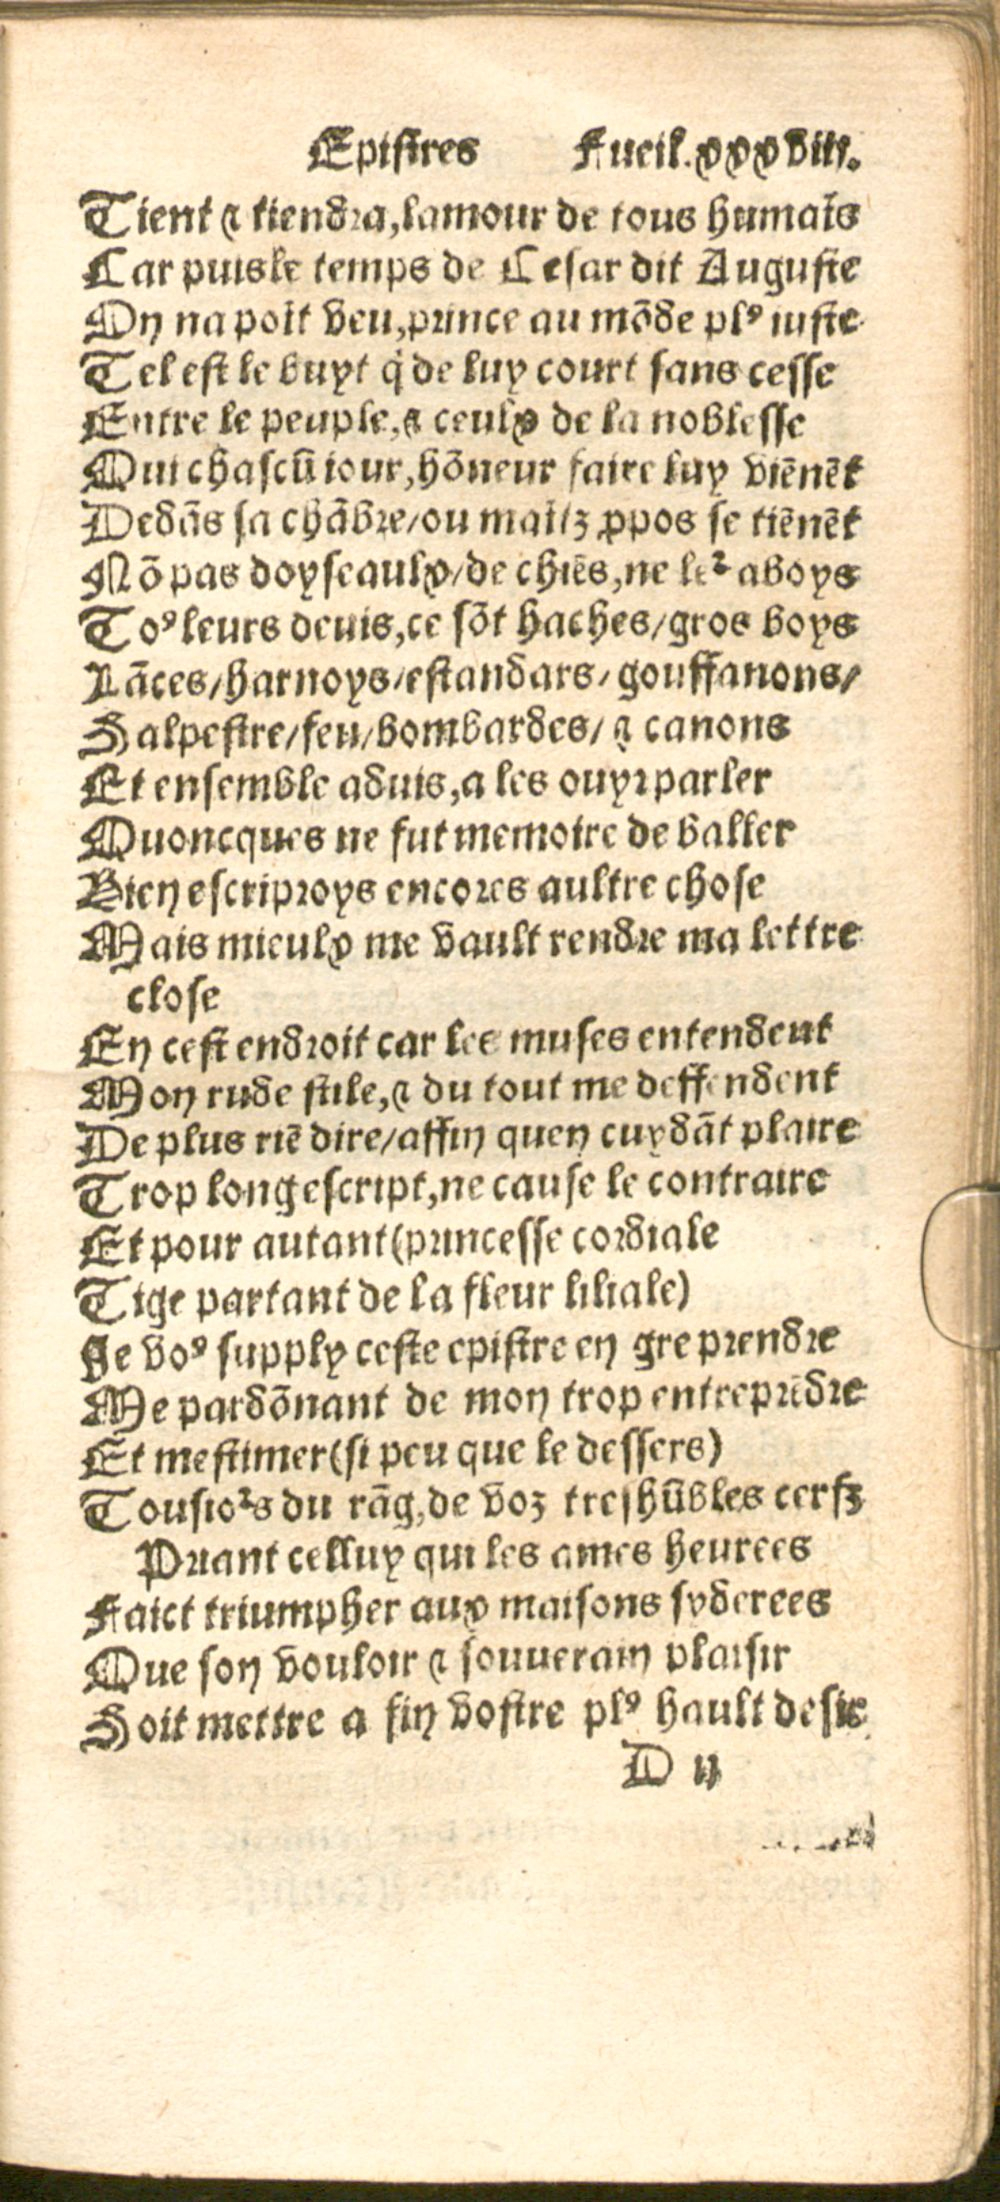 Epistres Fueil.xxxviii.
Tient ⁊ tiendra,lamour de tous humaĩs
Car puis le temps de Cesar dit Auguste
On na poĩt veu,prince au mõde plꝰ iuste
Tel est le buyt q̃ de luy court sans cesse
Entre le peuple,⁊ ceulx de la noblesse
Qui chascũ iour,hõneur faire luy viẽnẽt
Dedãs sa chãbre/ou maĩtz ꝓpos se tiẽnẽt
Nõ pas doyseaulx/de chiẽs,ne leꝛ aboys
Toꝰ leurs deuis,ce sõt haches/gros boys
Lãces/harnoys/estandars/gouffanons/
Salpestre/feu/bombardes/⁊ canons
Et ensemble aduis,a les ouyr parler
Quoncques ne fut memoire de baller
Bien escriproys encores aultre chose
Mais mieulx me vault rendre ma lettre
close
En cest endroit car les muses entendent
Mon rude stile,⁊ du tout me deffendent
De plus riẽ dire/affin quen cuydãt plaire
Trop long escript,ne cause le contraire
Et pour autant(princesse cordiale
Tige partant de la fleur liliale)
Je voꝰ supply ceste epistre en gre prendre
Me pardõnant de mon trop entreprẽdre
Et mestimer(si peu que le dessers)
Tousioꝛs du rãg,de voz treshũbles cerfz
Priant celluy qui les ames heurees
Faict triumpher aux maisons syderees
Que son vouloir ⁊ souuerain plaisir
Soit mettre a fin vostre plꝰ hault desir
D ii